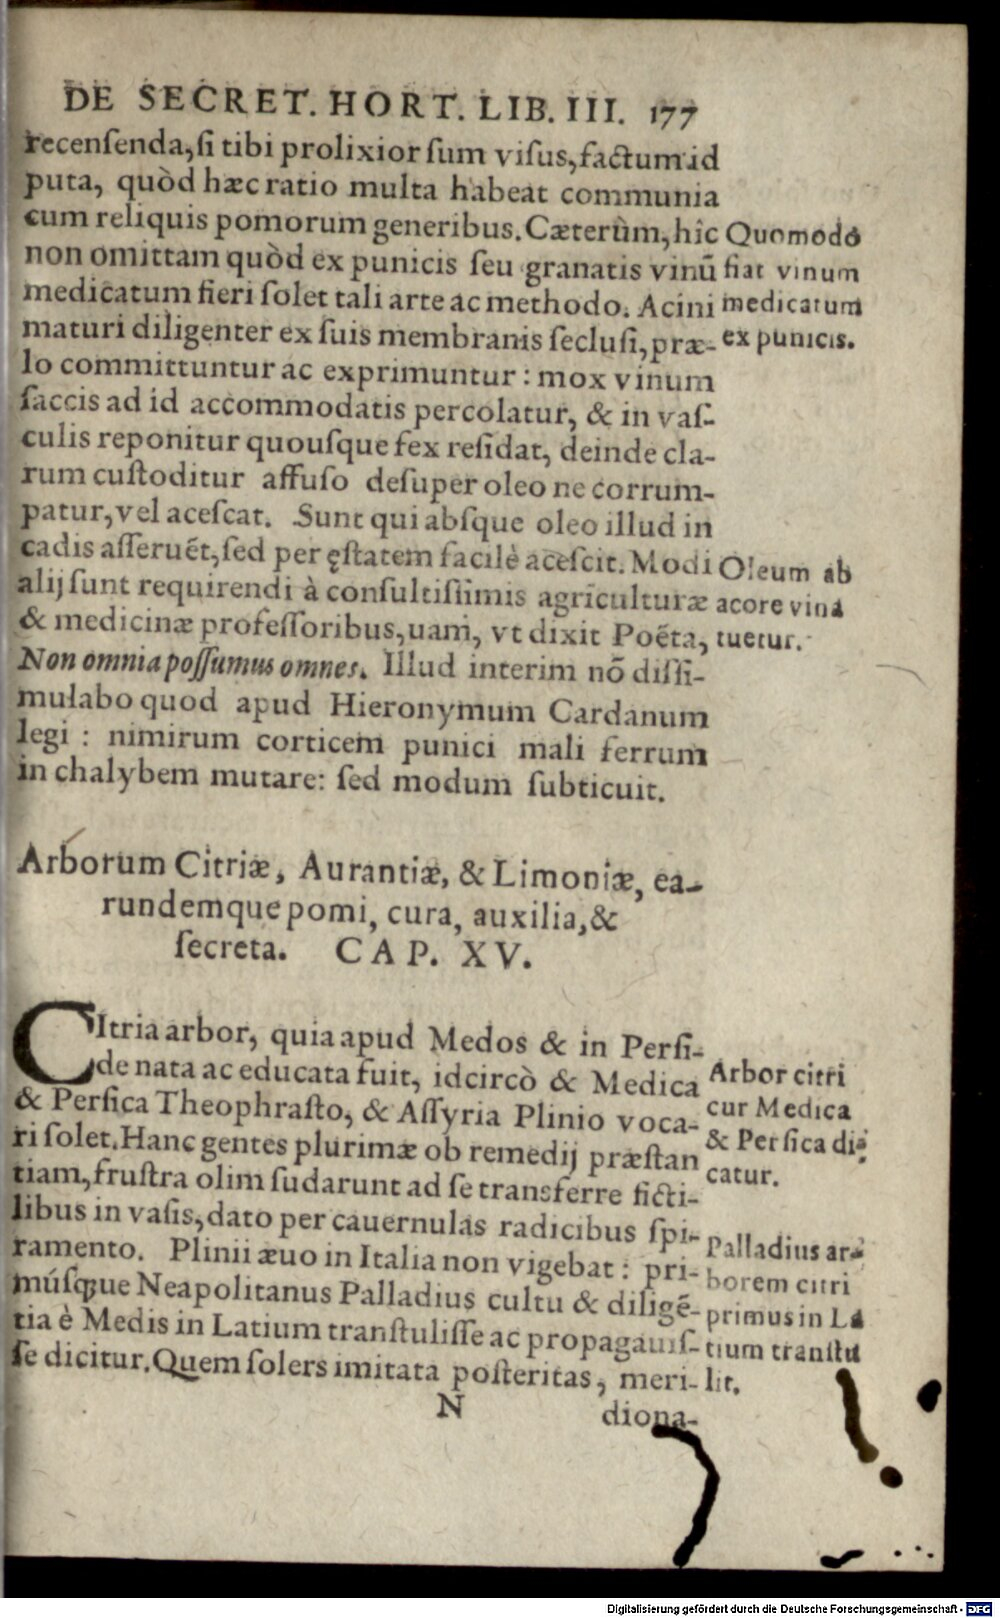 DE SECRET. HORT. LIB. III. 177
recenſenda, ſi tibi prolixior ſum viſus, factum id
puta, quòd hæc ratio multa habeat communia
cum reliquis pomorum generibus. Cæterùm, hîc
non omittam quòd ex punicis ſeu granatis vinū
medicatum fieri ſolet tali arte ac methodo. Acini
maturi diligenter ex ſuis membranis ſecluſi, præ-
lo committuntur ac exprimuntur: mox vinum
ſaccis ad id accommodatis percolatur, & in vaſ-
culis reponitur quouſque fex reſidat, deinde cla-
rum cuſtoditur affuſo deſuper oleo ne corrum-
patur, vel aceſcat. Sunt qui abſque oleo illud in
cadis aſſeruēt, ſed per ęſtatem facilè aceſcit. Modi
alij ſunt requirendi à conſultiſſimis agriculturæ
& medicinæ profeſſoribus, uam, vt dixit Poëta,
Non omnia poſſumus omnes. Illud interim nō diſſi-
mulabo quod apud Hieronymum Cardanum
legi: nimirum corticem punici mali ferrum
in chalybem mutare: ſed modum ſubticuit.
Quomodo
fiat vinum
medicatum
ex punicis.
Oleum ab
acore vina
tuetur.
Arborum Citriæ, Aurantiæ, & Limoniæ, ea-
rundemque pomi, cura, auxilia, &
ſecreta. CAP. XV.
CItria arbor, quia apud Medos & in Perſi-
de nata ac educata fuit, idcircò & Medica
& Perſica Theophraſto, & Aſſyria Plinio voca-
ri ſolet. Hanc gentes plurimæ ob remedij præſtan
tiam, fruſtra olim ſudarunt ad ſe transferre ficti-
libus in vaſis, dato per cauernulas radicibus ſpi-
ramento. Plinii æuo in Italia non vigebat: pri-
múſq;ue Neapolitanus Palladius cultu & diligē-
tia è Medis in Latium tranſtuliſſe ac propagauiſ-
ſe dicitur. Quem ſolers imitata poſteritas, meri-
Arbor citri
cur Medica
& Perſica di-
catur.
Palladius ar-
borem citri
primus in La
tium tranſtu
lit.
N diona-
Digitalisierung gefördert durch die Deutsche Forschungsgemeinschaft - DFG